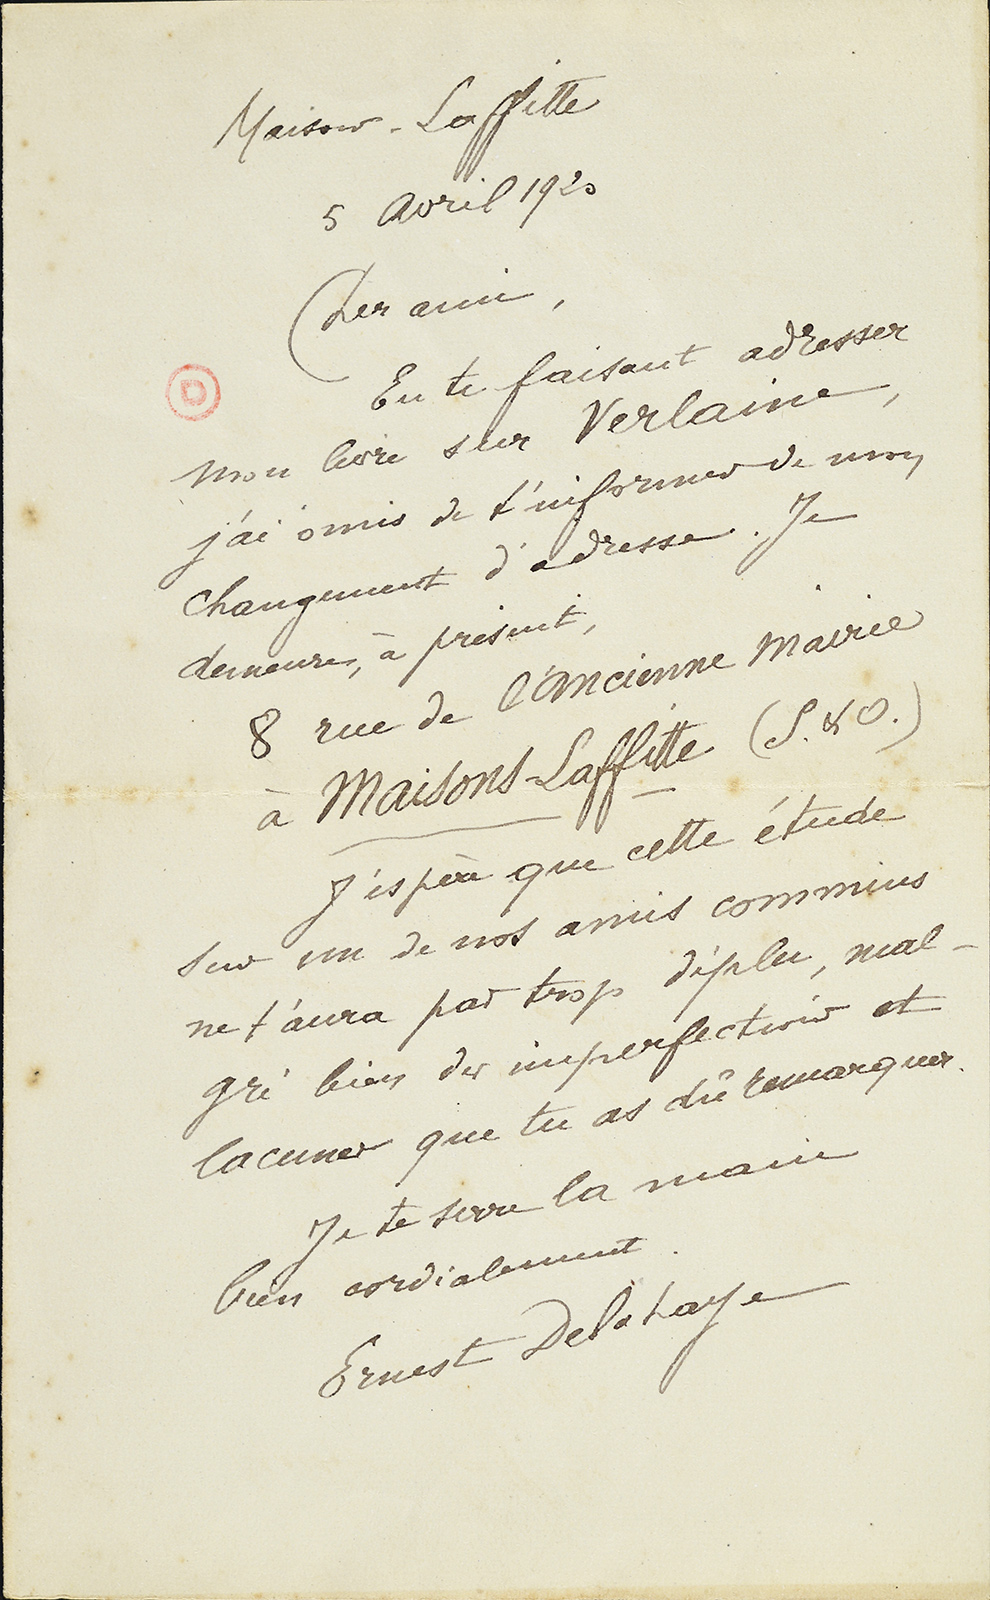 Maisons-Laffitte
5 Avril 1920
Cher ami,
En te faisant adresser
mon livre sur Verlaine,
j'ai omis de t'informer de mon
changement d'adresse. Je
demeure, à présent,
8 rue de l'Ancienne Mairie
à Maisons-Laffitte (S. & O.)
J'espère que cette étude
sur un de nos amis communs
ne t'aura pas trop déplu, mal-
gré bien des imperfections et
lacunes que tu as dû remarquer.
Je te serre la main
bien cordialement.
Ernest Delahaye
D